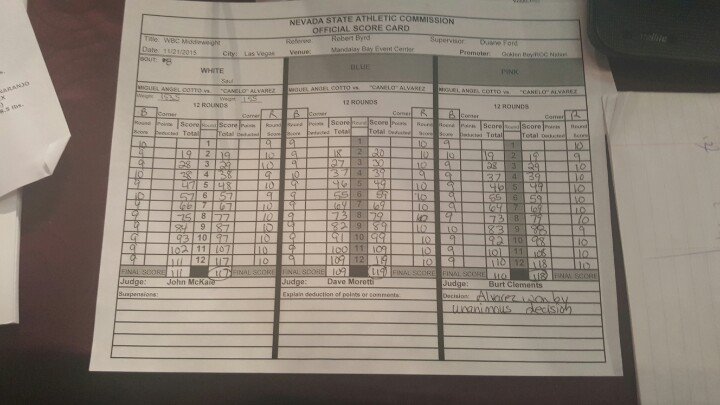 NEVADA STATE ATHLETIC COMMISSION
OFFICIAL SCORE CARD
Title: WBC Middleweight Referee: Robert Byrd Supervisor: Duane Ford
Date: 11/21/2015 City: Las Vegas Venue: Mandalay Bay Event Center Promoter: Golden Boy/ROC Nation
BOUT: #8
WHITE BLUE PINK
Saul
MIGUEL ANGEL COTTO vs. "CANELO" ALVAREZ MIGUEL ANGEL COTTO vs. "CANELO" ALVAREZ MIGUEL ANGEL COTTO vs. "CANELO" ALVAREZ
Weight Weight 155
12 ROUNDS 12 ROUNDS 12 ROUNDS
B Corner Corner R B Corner Corner R B Corner Corner R
Round Score Points Deducted Score Total Round Score Total Points Deducted Round Score Round Score Points Deducted Score Total Round Score Total Points Deducted Round Score Round Score Points Deducted Score Total Round Score Total Points Deducted Round Score
10 1 9 9 1 10 9 1 10
9 19 2 19 10 9 18 2 20 10 10 19 2 19 9
9 28 3 29 10 9 27 3 30 10 9 28 3 29 10
10 38 4 38 9 10 37 4 39 9 9 37 4 39 10
9 47 5 48 10 9 46 5 49 10 9 46 5 49 10
10 57 6 57 9 9 55 6 59 10 9 55 6 59 10
9 66 7 67 10 9 64 7 69 10 9 64 7 69 10
9 75 8 77 10 9 73 8 79 10 9 73 8 79 10
9 84 9 87 10 9 82 9 89 10 10 83 9 88 9
9 93 10 97 10 9 91 10 99 10 9 92 10 98 10
9 102 11 107 10 9 100 11 109 10 9 101 11 108 10
9 111 12 117 10 9 109 12 119 10 9 110 12 118 10
FINAL SCORE 111 117 FINAL SCORE FINAL SCORE 109 119 FINAL SCORE FINAL SCORE 110 118 FINAL SCORE
Judge: John McKaie Judge: Dave Moretti Judge: Burt Clements
Suspensions: Explain deduction of points or comments: Decision: Alvarez won by
unanimous decision
NARANJO